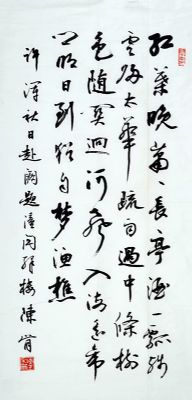 紅葉晚蕭々長亭酒一瓢殘
雲歸太華疏雨過中條樹
色隨關迥河聲入海遙帝
鄉明日到猶自夢漁樵
許渾秋日赴闕題潼關驛樓 陳